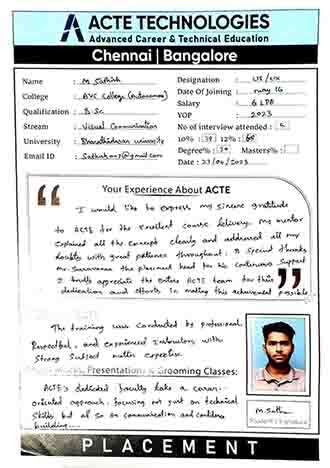 ACTE TECHNOLOGIES
Advanced Career & Technical Education
Chennai | Bangalore
Name : M Sathish
Designation : UI/UX
College : AVC College (Autonomous)
Date Of Joining : may 16
Qualification : B.Sc.
Salary : 6 LPA
Stream : Visual Communication
YOP : 2023
University : Bharathidasan university
No of interview attended :
10% : 12% :
Email ID :
Degree% : Masters% :
Date : 23/06/2023
Your Experience About ACTE
I would like to express my sincere gratitude
to ACTE for the excellent course delivery. My mentor
explained all the concept clearly and addressed all my
doubts with great patience throughout. A special thanks
Mr. Saravanan the placement head for his continuous support
I truly appreciate the entire ACTE team for their
dedication and efforts in making this achievement possible
The training was conducted by professional,
Respectful, and experienced instructors with
strong subject matter expertise.
Presentation & Grooming Classes:
ACTE's dedicated faculty take a career-
oriented approach, focusing not just on technical
skills but also on communication and confidence
building
M.Sathish
Student's Signature
PLACEMENT